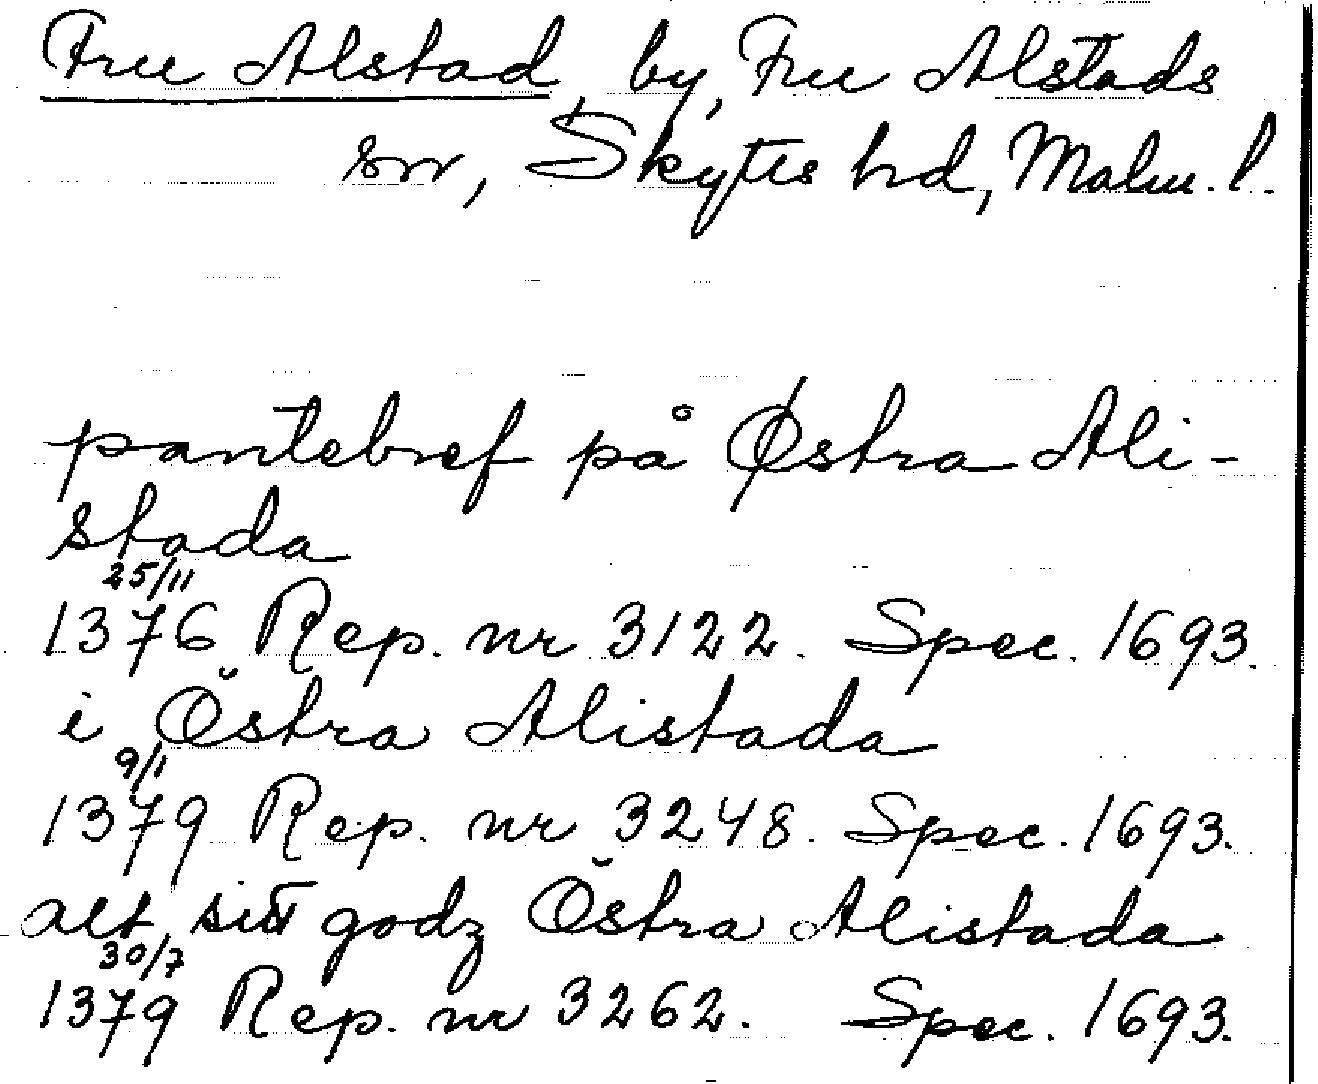 Fru Alstad by, Fru Alstads
sn, Skytts hd, Malm. l.
pantebref på Østra Ali-
stada
25/11
1376 Rep. nr 3122. Spec. 1693.
i Östra Alistada
9/1
1379 Rep. nr 3248. Spec. 1693.
alt sitt godz Östra Alistada
30/7
1379 Rep. nr 3262. Spec. 1693.